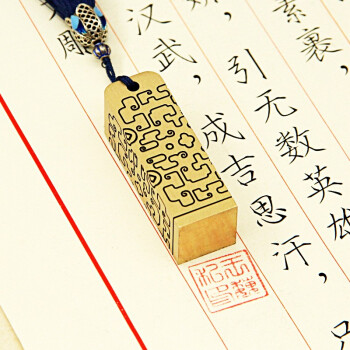 素裹，
引无数英雄
汉武，
成吉思汗，只
雕